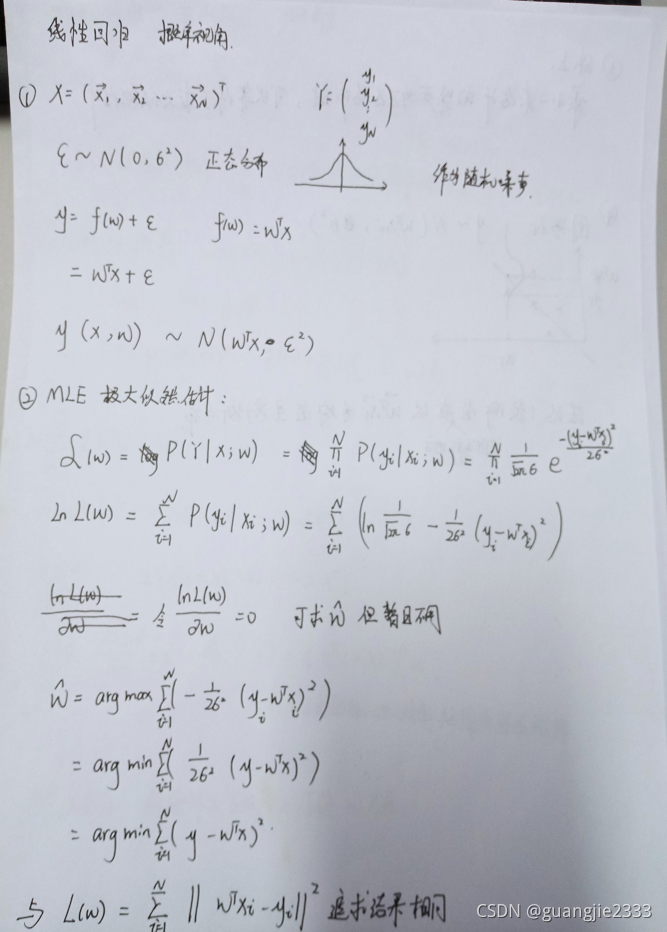 线性回归 概率视角.
① X = (x⃗₁, x⃗₂ … x⃗_N)ᵀ Y = (y₁ y₂ ⋮ y_N)
ε ~ N(0, 6²) 正态分布 作为随机噪声.
y = f(w) + ε f(w) = wᵀx
= wᵀx + ε
y (x, w) ~ N(wᵀx, ε²)
② MLE 极大似然估计:
L(w) = P(Y|X;w) = ∏_{i=1}^{N} P(y_i|x_i;w) = ∏_{i=1}^{N} 1/(√2π 6) e^{-(y_i-wᵀx_i)²/26²}
ln L(w) = ∑_{i=1}^{N} P(y_i|x_i;w) = ∑_{i=1}^{N} (ln 1/(√2π 6) - 1/26² (y_i-wᵀx_i)²)
lnL(w)/∂w = 令 lnL(w)/∂w = 0 可求ŵ 但暂且不用
ŵ = arg max ∑_{i=1}^{N} (- 1/26² (y_i-wᵀx_i)²)
= arg min ∑_{i=1}^{N} (1/26² (y-wᵀx)²)
= arg min ∑_{i=1}^{N} (y-wᵀx)².
与 L(w) = ∑_{i=1}^{N} ‖wᵀx_i-y_i‖² 追求结果相同
CSDN @guangjie2333